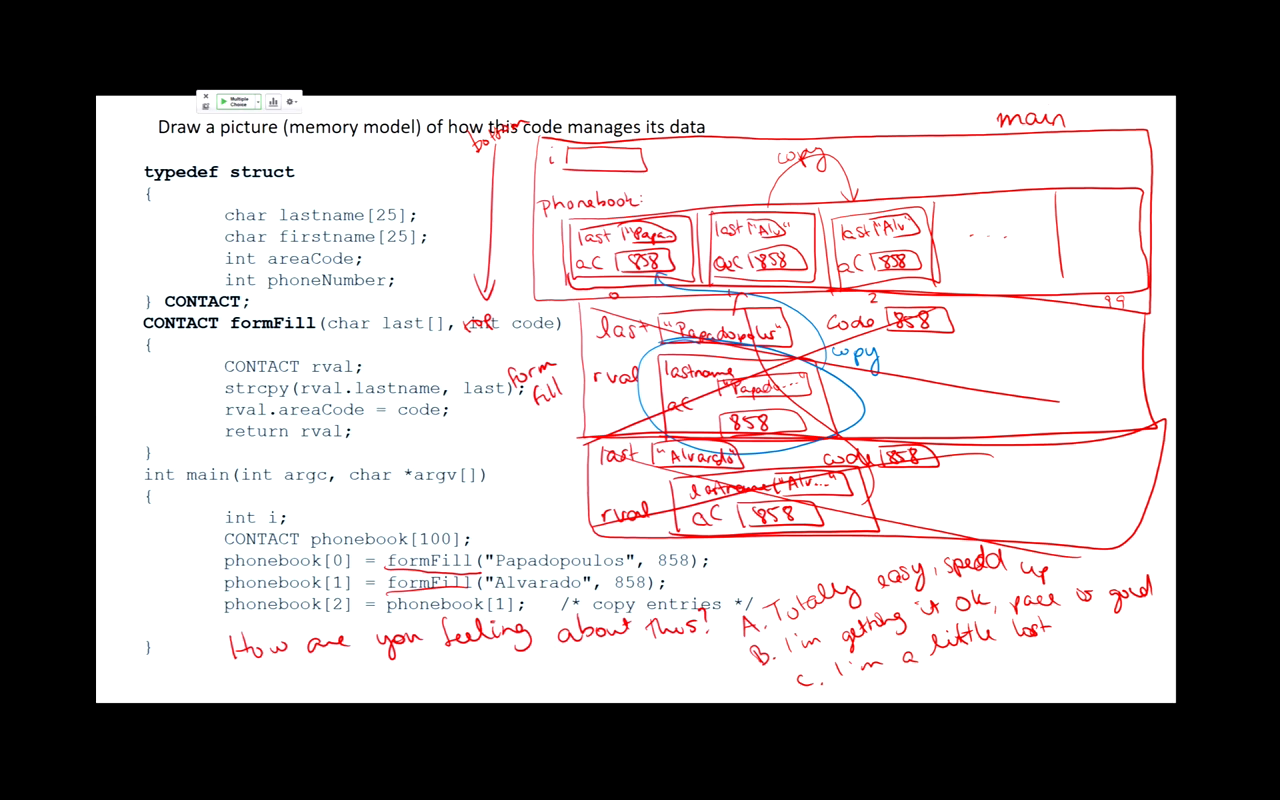 Multiple
Choice
Draw a picture (memory model) of how this code manages its data
bottom
main
typedef struct
{
char lastname[25];
char firstname[25];
int areaCode;
int phoneNumber;
} CONTACT;
CONTACT formFill(char last[], int code)
{
CONTACT rval;
strcpy(rval.lastname, last);
rval.areaCode = code;
return rval;
}
int main(int argc, char *argv[])
{
int i;
CONTACT phonebook[100];
phonebook[0] = formFill("Papadopoulos", 858);
phonebook[1] = formFill("Alvarado", 858);
phonebook[2] = phonebook[1]; /* copy entries */
}
top
form
fill
i
copy
phonebook:
last "Papa last "Alv" last "Alv"
aC 858 aC 858 aC 858
....
0 1 2 99
last "Papadopolus" code 858
copy
rval lastname
"Papado...."
aC
858
last "Alvarado" code 858
lastname "Alv..."
rval aC 858
How are you feeling about this?
A. Totally easy, spedd up
B. I'm getting it OK, pace is good
C. I'm a little lost